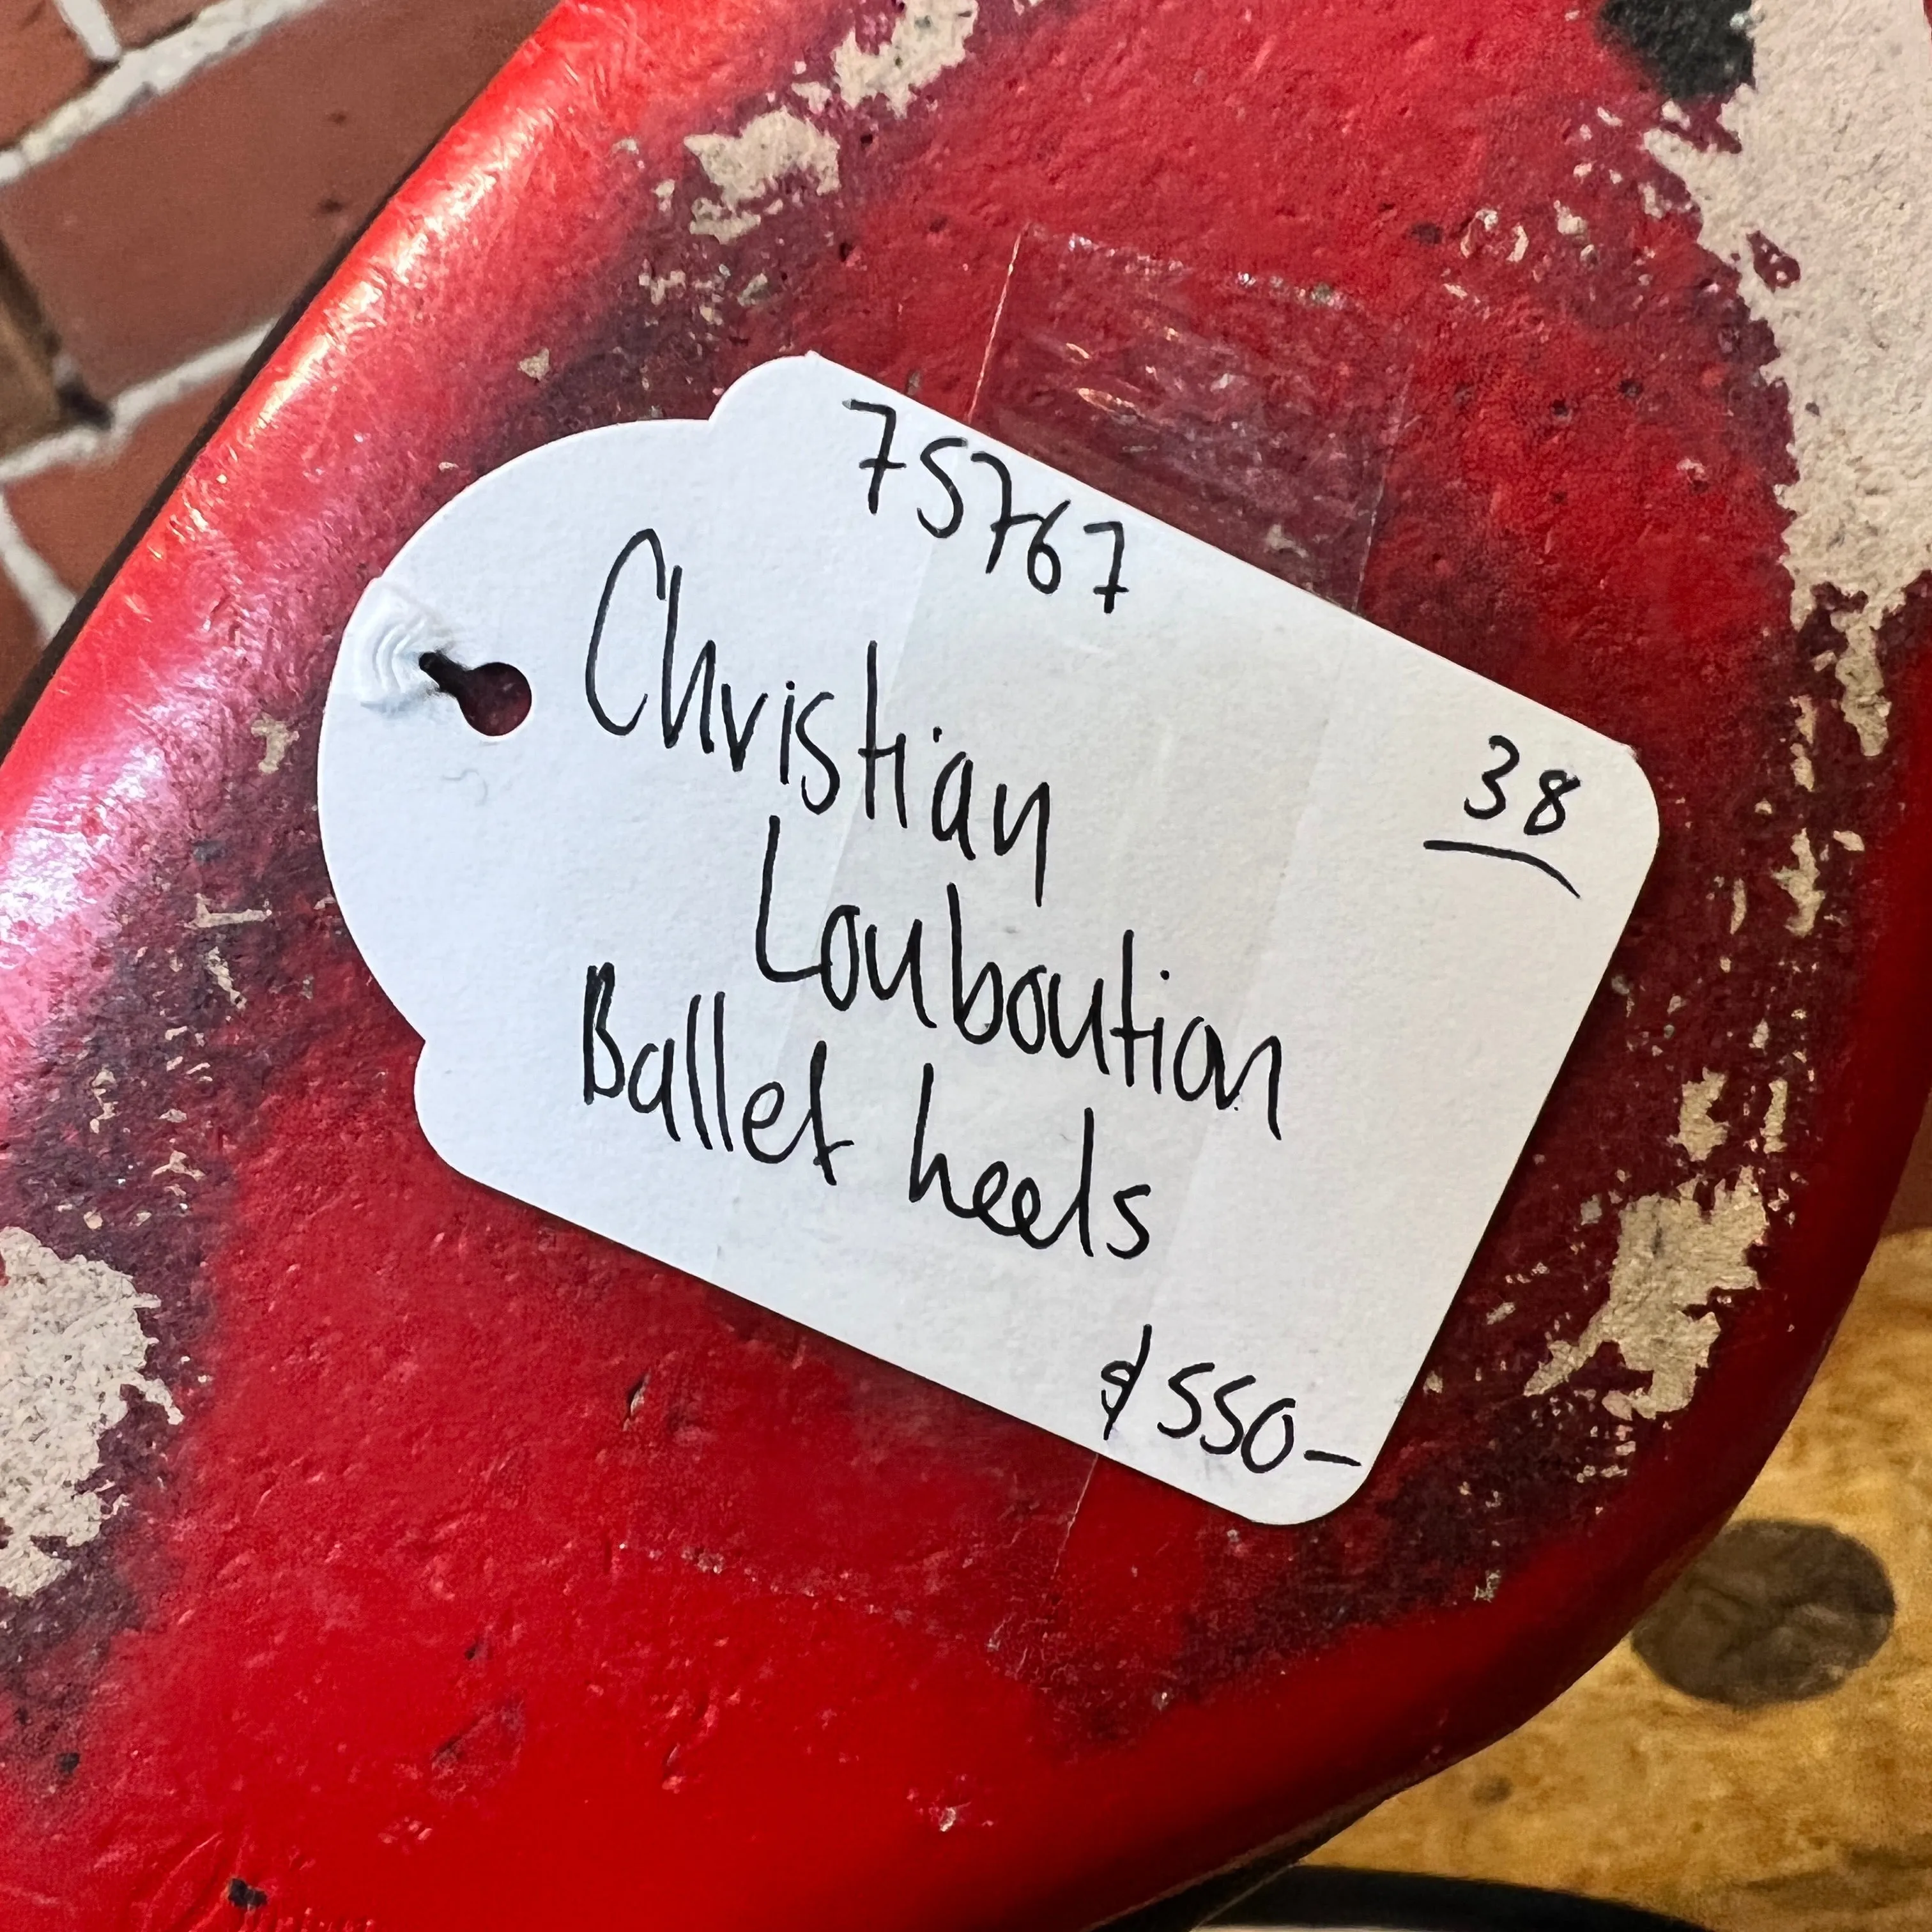 75767
38
Christian
Louboution
Ballet heels
$550-